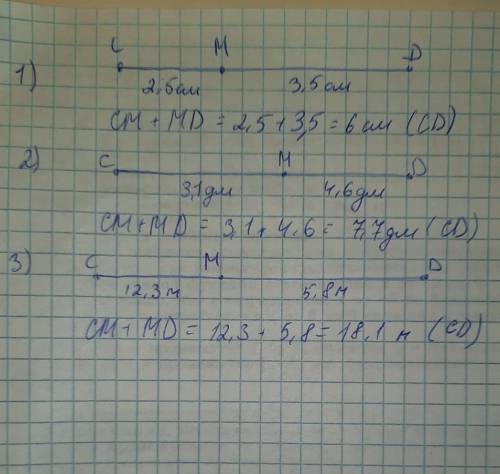 1)
C M D
2,5 см 3,5 см
CM + MD = 2,5 + 3,5 = 6 см (CD)
2)
C M D
3,1 дм 4,6 дм
CM+MD = 3,1 + 4,6 = 7,7 дм (CD)
3)
C M D
12,3 м 5,8 м
CM + MD = 12,3 + 5,8 = 18,1 м (CD)